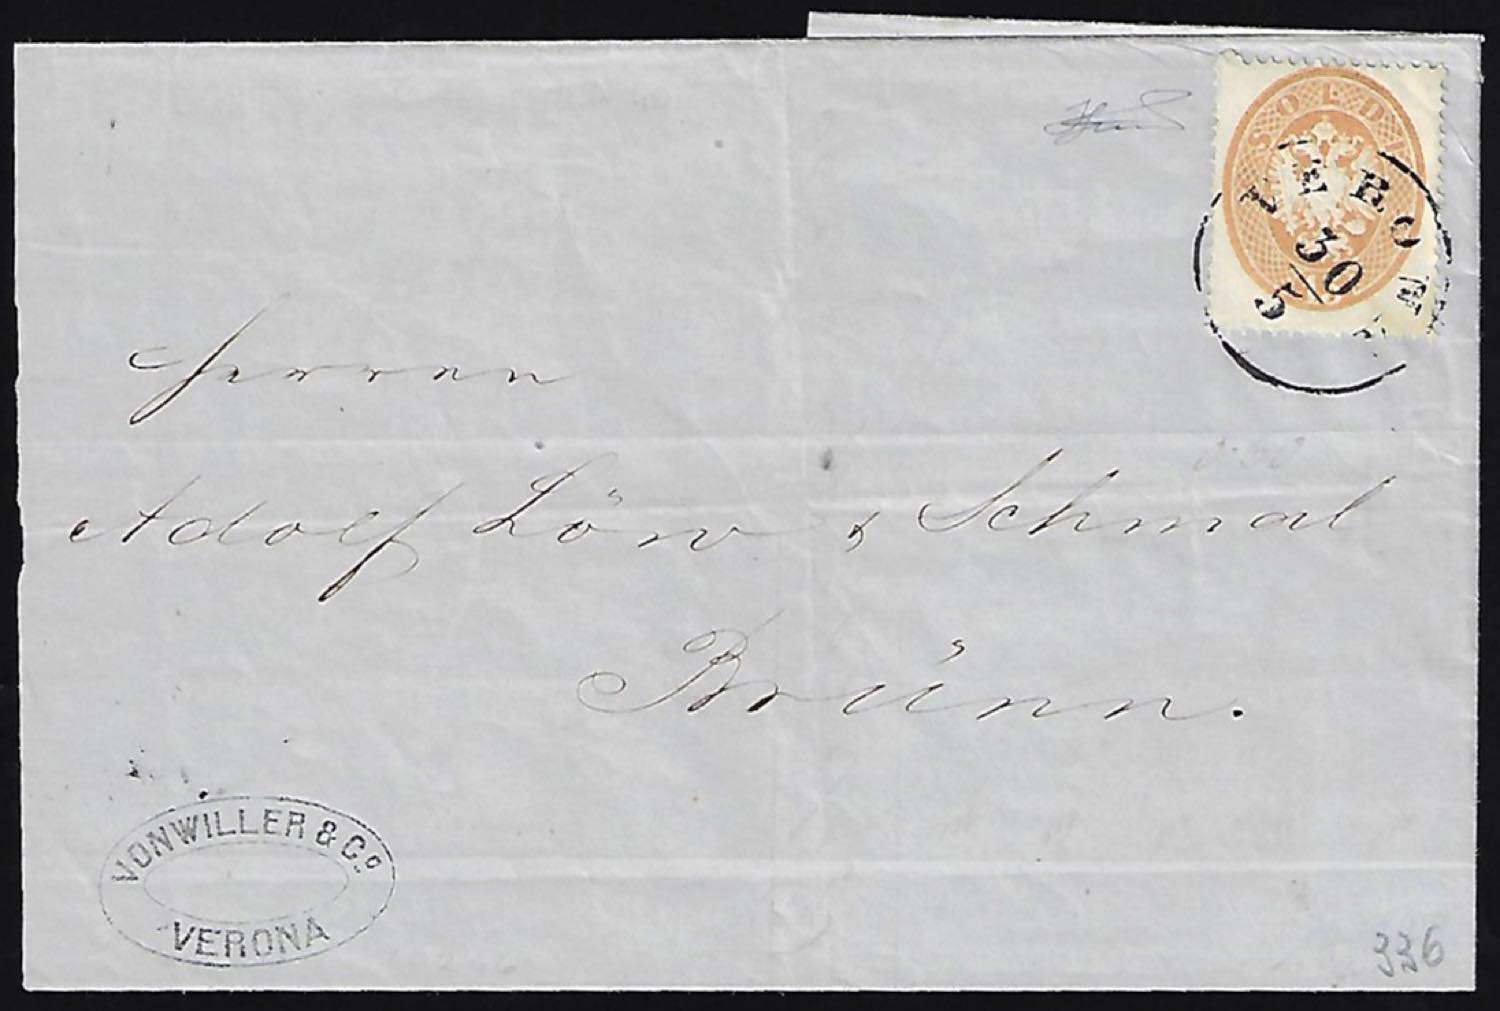 SOLDI
VERONA
30
5
Herren
Adolf Löw & Schmal
Brünn.
VONWILLER & Co
VERONA
336